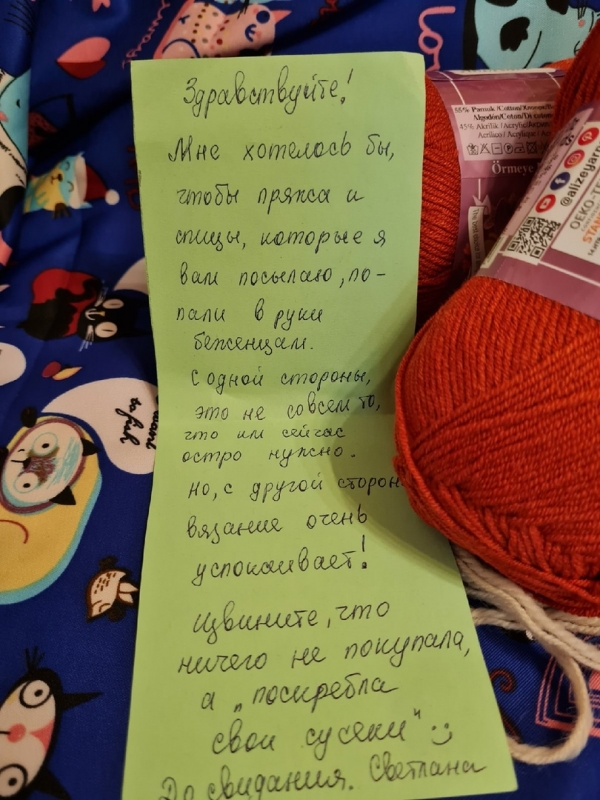 Здравствуйте!
Мне хотелось бы,
чтобы пряжа и
спицы, которые я
вам посылаю, по-
пали в руки
беженцам.
С одной стороны,
это не совсем то,
что им сейчас
остро нужно.
Но, с другой сторон
вязание очень
успокаивает!
Извините, что
ничего не покупала,
а „поскребла
свои сусеки" :)
До свидания. Светлана
55% Pamuk/Cotton/
Algodón/Cotone/
45% Akrilik/Acrylic/
Örmeye
@alizeyarn
OEKO-TE
STAN